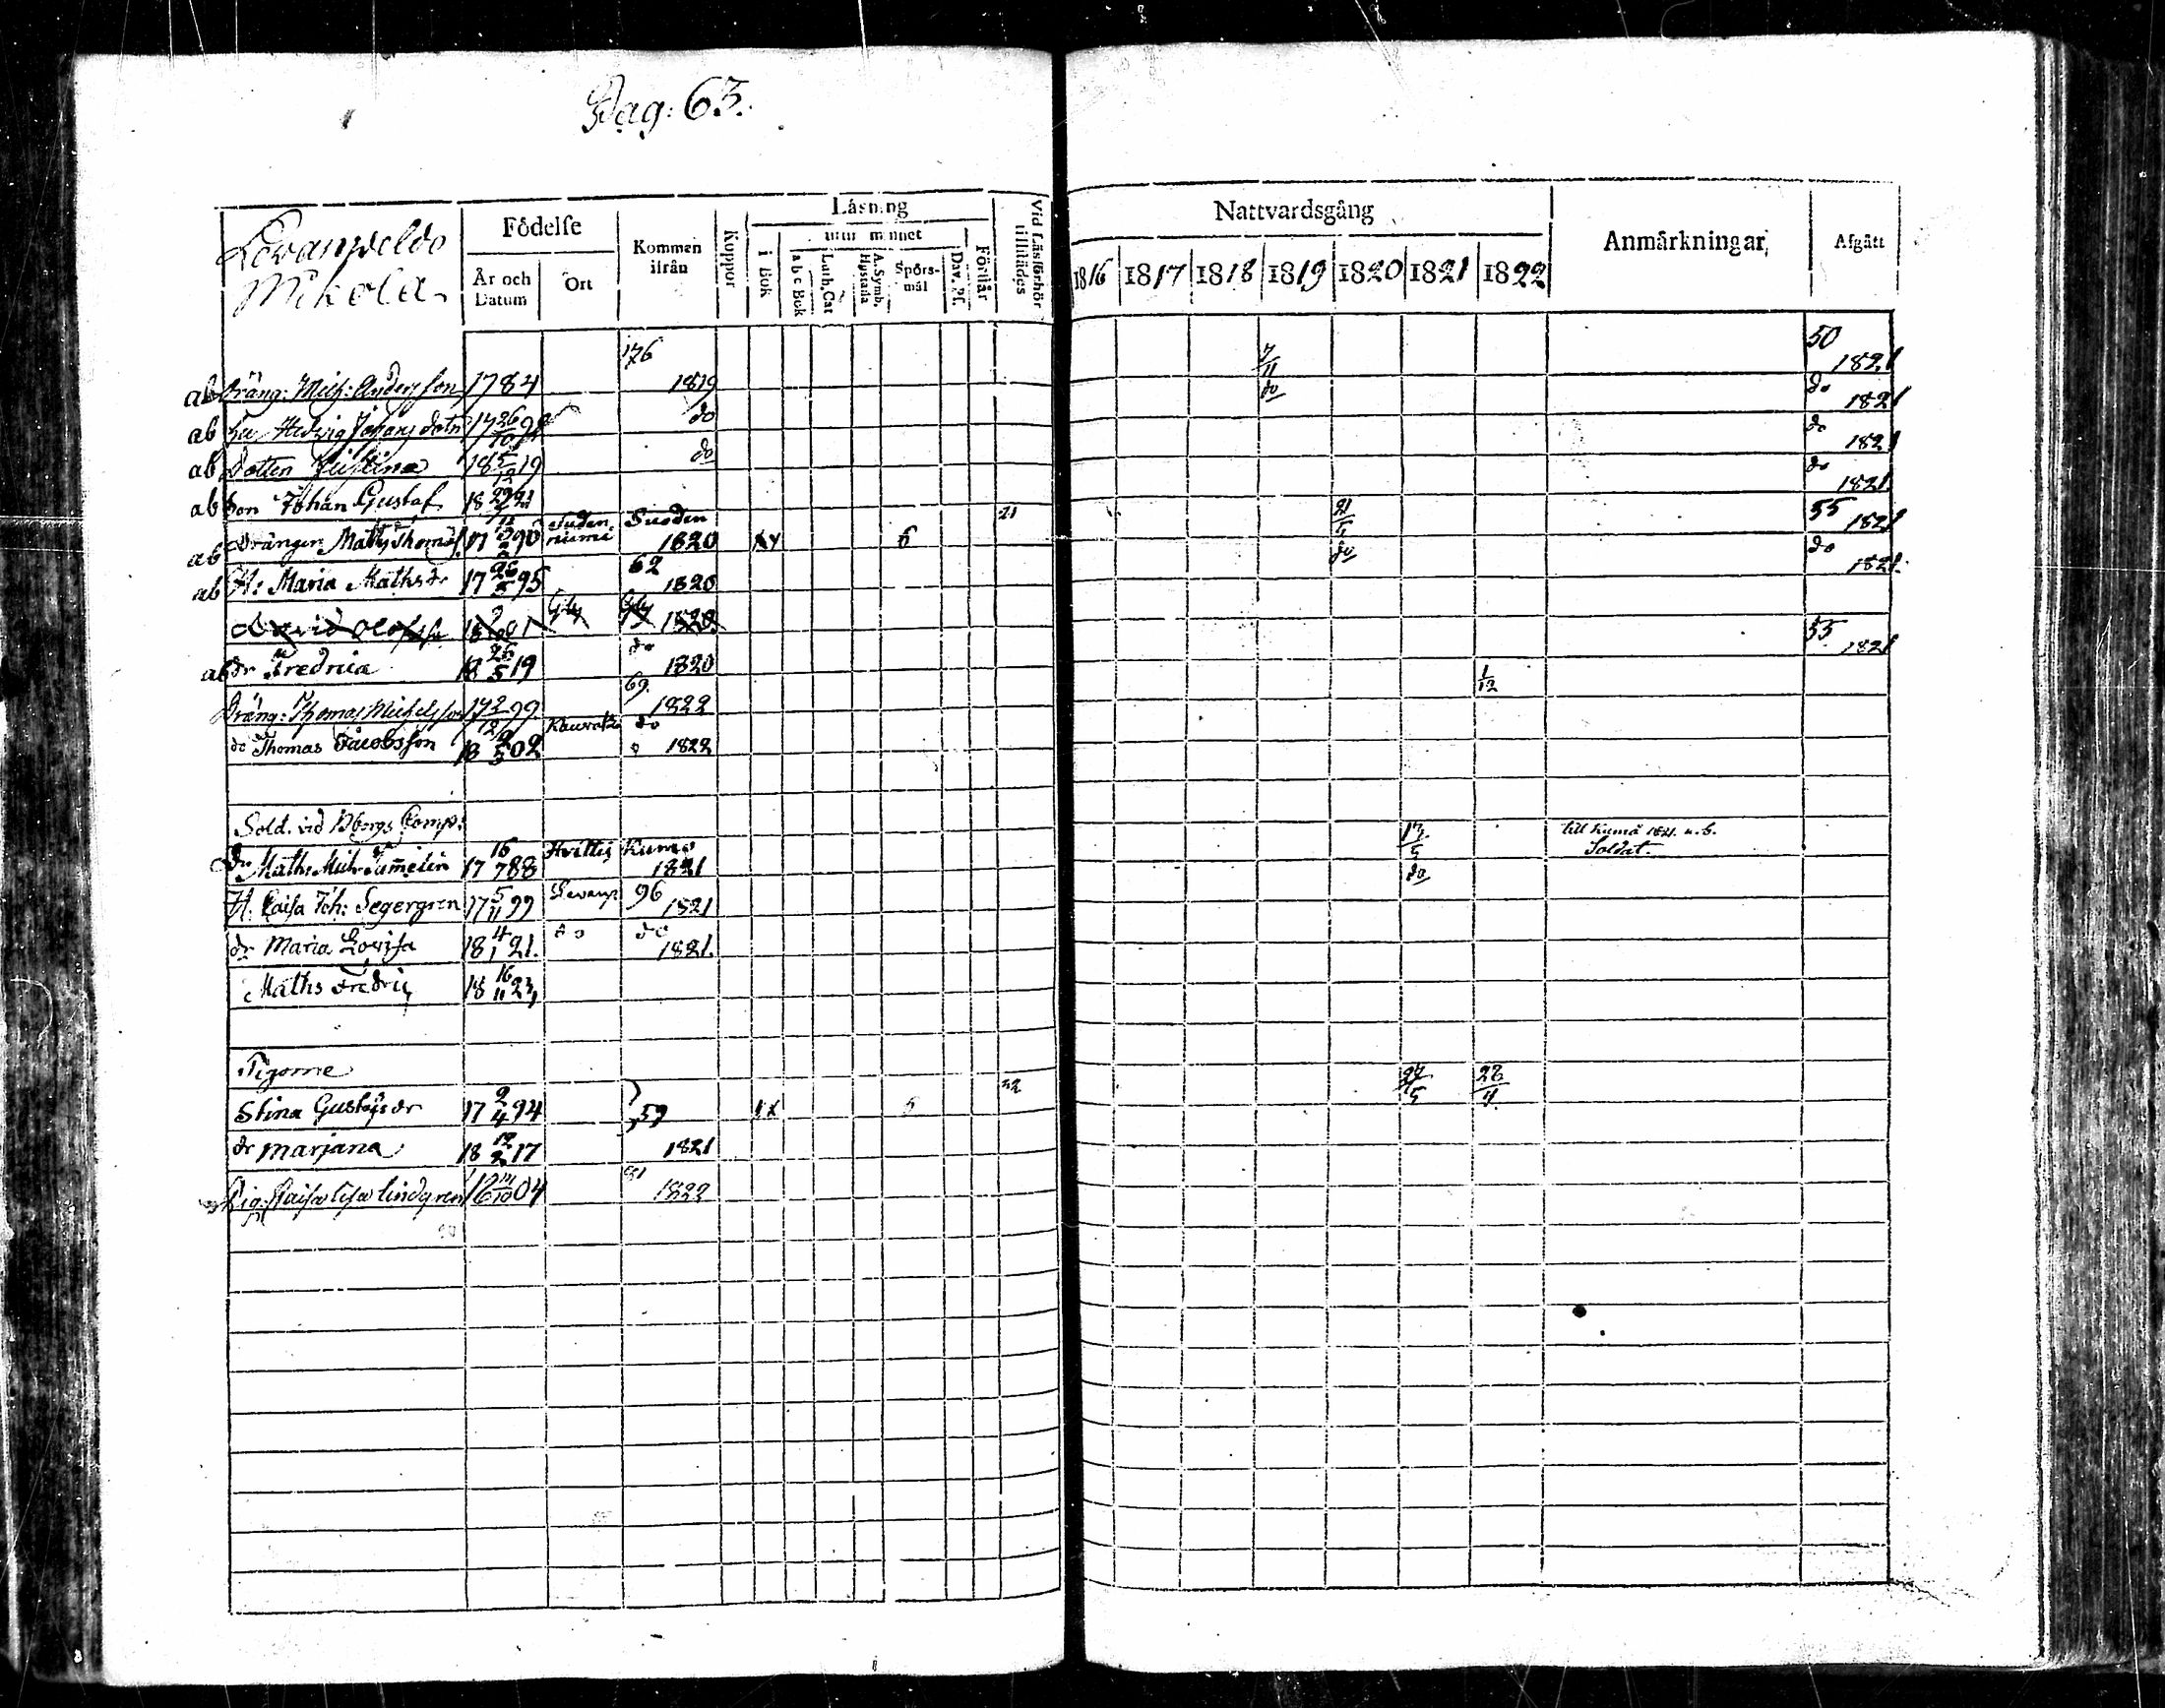 Pag: 63.
Levanpeldo
Mikola
Födelse
År och Datum
Ort
Kommen ifrån
Koppor
Läsning
i Bok
utur minnet
a b c Bok
Luth. Cat
A. Symb. Hustafla
Spörsmål
Dav. Ps.
Förstår
Vid Läsförhör tillstädes
Nattvardsgång
1816 1817 1818 1819 1820 1821 1822
Anmärkningar
Afgått
ab Dräng: Mich: Andersson 1784 176 1819 7/11 50 1821
ab Hu Hedvig Johans dotr 17 26/10 do do do 1821
ab Dotten Justina 18 5/12 19 do do 1821
ab Son Johan Gustaf 18 21 do 1821
ab Drängen Matts Thomas 17 90 Suoden niemi Suoden 1820 6 21 21/5 55 1821
ab H: Maria Mathsdr 17 26/5 95 62 1820 do do 1821.
David Olofss 1820
ab dr Fredrica 18 25/5 19 do 1820 55 1821
Dräng: Thomas Michelsson 17 99 69. 1822 1/12
do Thomas Jacobsson 18 02 do 1822
Sold. vid Bborgs Comp:
Math: Mich. Tamelin 17 16/7 88 Hvittis Kumo 1821 17/5 till Kumo 1821. u. b. Soldat.
H. Caisa Joh: Segergren 17 5/11 99 Levanp 96 1821 do
dr Maria Lovisa 18 4/1 21. do do 1821.
Maths Fredric 18 16/11 23
Pigorne
Stina Gustafsdr 17 2/4 94 } 59 6 22 5 28/4
dr Marjana 18 12/2 17 1821
Pig: Caisa Lisa Lindgren 18 04 1822